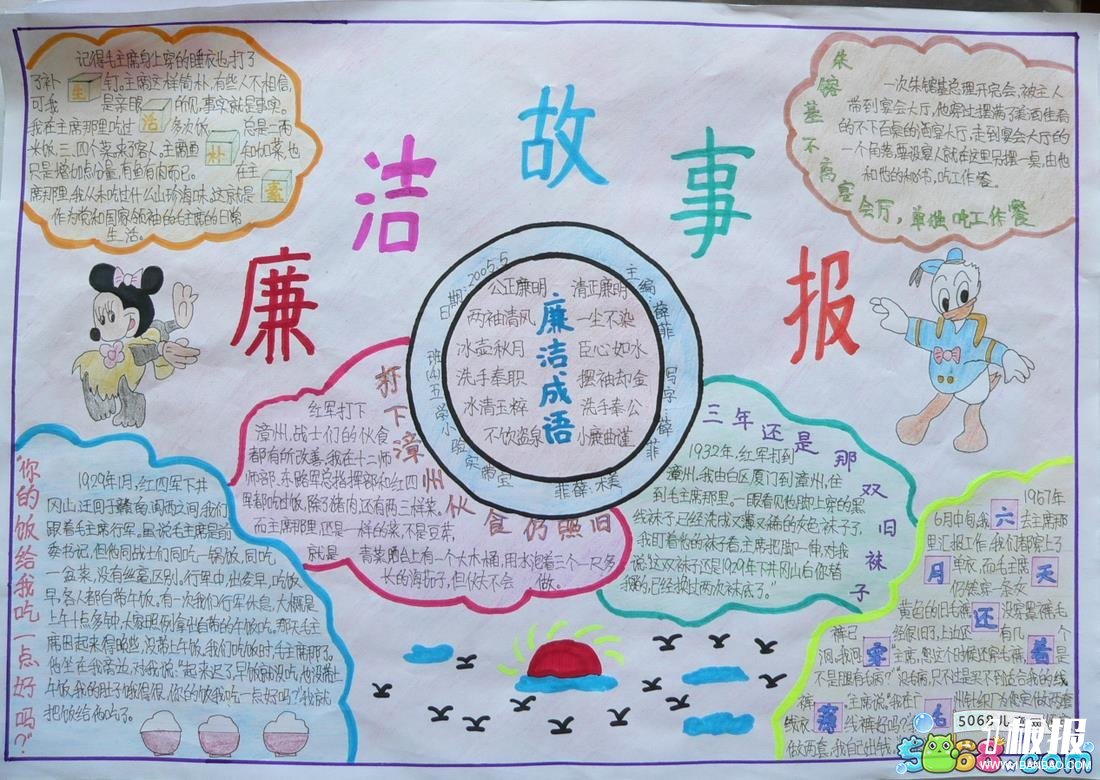 廉洁故事报
记得毛主席身上穿的睡衣也打了
了补 钉。主席这样简朴,有些人不相信,
可我 是亲眼 所见,事实就是事实。
我在主席那里吃过 多次饭 总是二两
米饭,三、四个菜,来了客人。主席鱼 知加菜,也
只是增加点份量,有鱼有肉而已。 在主
席那里,我从未吃过什么山珍海味,这就是
作为党和国家领袖的毛主席的日常
生活。
生
活
朴
素
朱镕基不离宴会厅,单独吃工作餐
一次朱镕基总理开完会,被主人
带到宴会大厅,他穿过摆满了美酒佳肴
的不下百桌的酒宴大厅,走到宴会大厅的
一个角落,要设宴人就在这里另摆一桌,由他
和他的秘书,吃工作餐。
日期:2005.5
主编:薛菲
写字:薛菲
美术:薛菲
宝鸡实验小学五(4)班
廉洁成语
公正廉明 清正廉明
两袖清风 一尘不染
冰壶秋月 臣心如水
洗手奉职 摆袖却金
冰清玉粹 洗手奉公
不饮盗泉 小廉曲谨
打下漳州伙食仍照旧
红军打下
漳州,战士们的伙食
都有所改善,我在十二师
师部、东路军总指挥部和红四
里都吃过饭,除了猪肉,还有两三样菜,
而主席那里,还是一样的菜,不是豆芽,
就是 青菜,晒台上有一个大木桶,用水泡着三个一尺多
长的海茄子,但伙夫不会 做。
三年还是那双旧袜子
1932年,红军打到
漳州,我由白区厦门到漳州,住
到毛主席那里。一眼看见他脚上穿的黑
线袜子,已经洗成又薄又稀的灰色袜子了,
我盯着他的袜子看,主席把脚一伸,对我
说:这双袜子还是1929年下井冈山白你替
我的,已经换过两次袜底了。"
"你的饭给我吃一点好吗?"
1929年1月,红四军下井
冈山,迂回于赣南、闽西之间,我们
跟着毛主席行军。虽说毛主席是前
委书记,但他同战士们同吃一锅饭,同吃
一盆菜,没有丝毫区别。行军中,出发早,吃饭
早,各人都自带午饭。有一次我们行军休息,大概是
上午十点多钟,大家照例拿出自带的午饭吃。那天毛主
席因起来得晚些,没带上午饭,我们吃饭时毛主席那了。
他坐在我旁边,对我说:"起来迟了,早饭就没吃,也没带上
午饭,我的肚子饿得很,你的饭我吃一点好吗?"我就
把饭给他吃了。
六
月
天
还
穿
着
薄
毛
1967年
6月中旬,我 去主席那
里汇报工作,我们都穿上了
单衣,而毛主席
仍然穿一条女
黄色的旧毛裤, 没穿罩裤,毛
裤已 经很旧了,上边还 有几 个
洞,我问 主席,您这个时候还穿毛裤, 是
不是腿有毛病?"没毛病,只不过是买不到适合我的线
裤 主席说:"我在广 州针织厂为您定做两套
线衣 线裤好吗?"
做两套,我自己出钱
板报
WWW.1BANBAO.COM